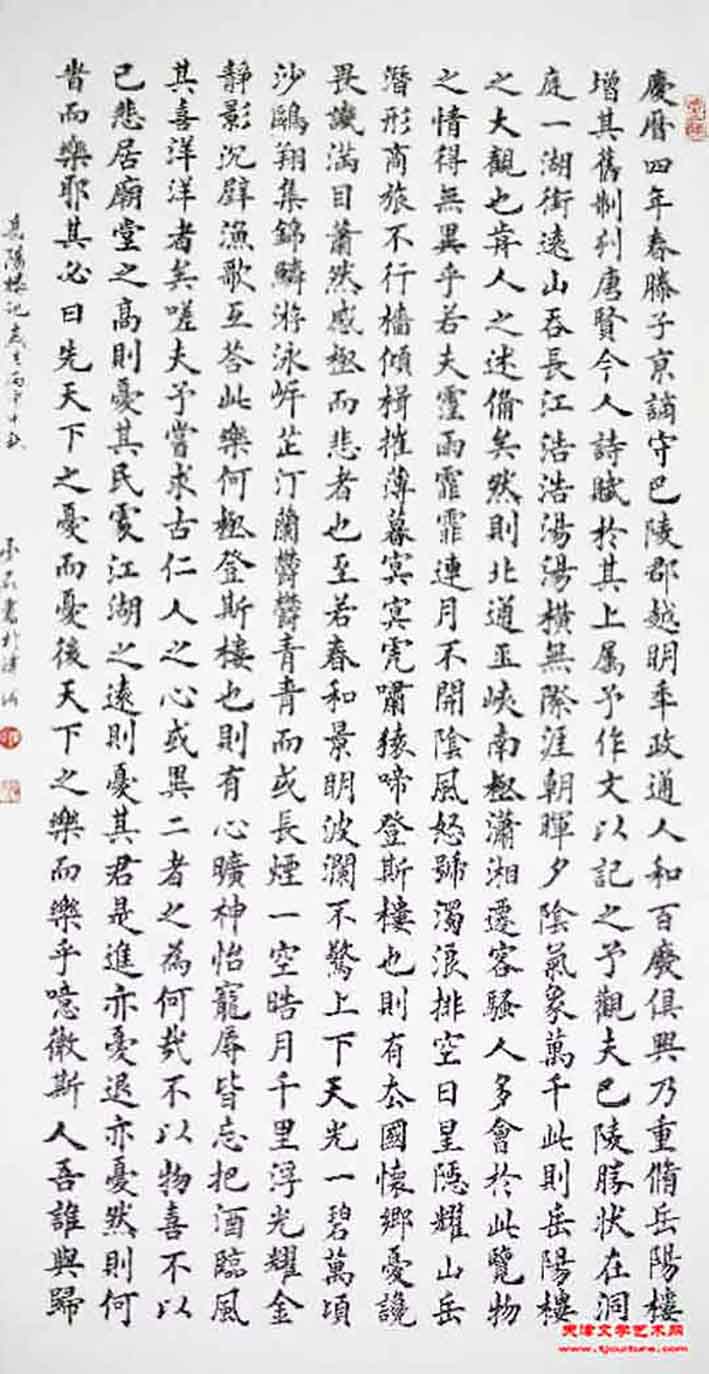 慶曆四年春滕子京謫守巴陵郡越明年政通人和百廢俱興乃重脩岳陽樓
增其舊制刋唐賢今人詩賦於其上属予作文以記之予觀夫巴陵勝狀在洞
庭一湖銜遠山吞長江浩浩湯湯橫無際涯朝暉夕陰氣象萬千此則岳陽樓
之大觀也前人之述備矣然則北通巫峽南極瀟湘遷客騷人多會於此覽物
之情得無異乎若夫霪雨霏霏連月不開陰風怒號濁浪排空日星隱耀山岳
潛形商旅不行檣傾楫摧薄暮冥冥虎嘯猿啼登斯樓也則有去國懷鄉憂讒
畏譏滿目蕭然感極而悲者也至若春和景明波瀾不驚上下天光一碧萬頃
沙鷗翔集錦鱗游泳岸芷汀蘭鬱鬱青青而或長煙一空皓月千里浮光耀金
靜影沉璧漁歌互荅此樂何極登斯樓也則有心曠神怡寵辱皆忘把酒臨風
其喜洋洋者矣嗟夫予嘗求古仁人之心或異二者之為何哉不以物喜不以
已悲居廟堂之高則憂其民處江湖之遠則憂其君是進亦憂退亦憂然則何
時而樂耶其必曰先天下之憂而憂後天下之樂而樂乎噫微斯人吾誰與歸
岳陽樓記
書於津沽
天津文学艺术网
www.tjculture.com